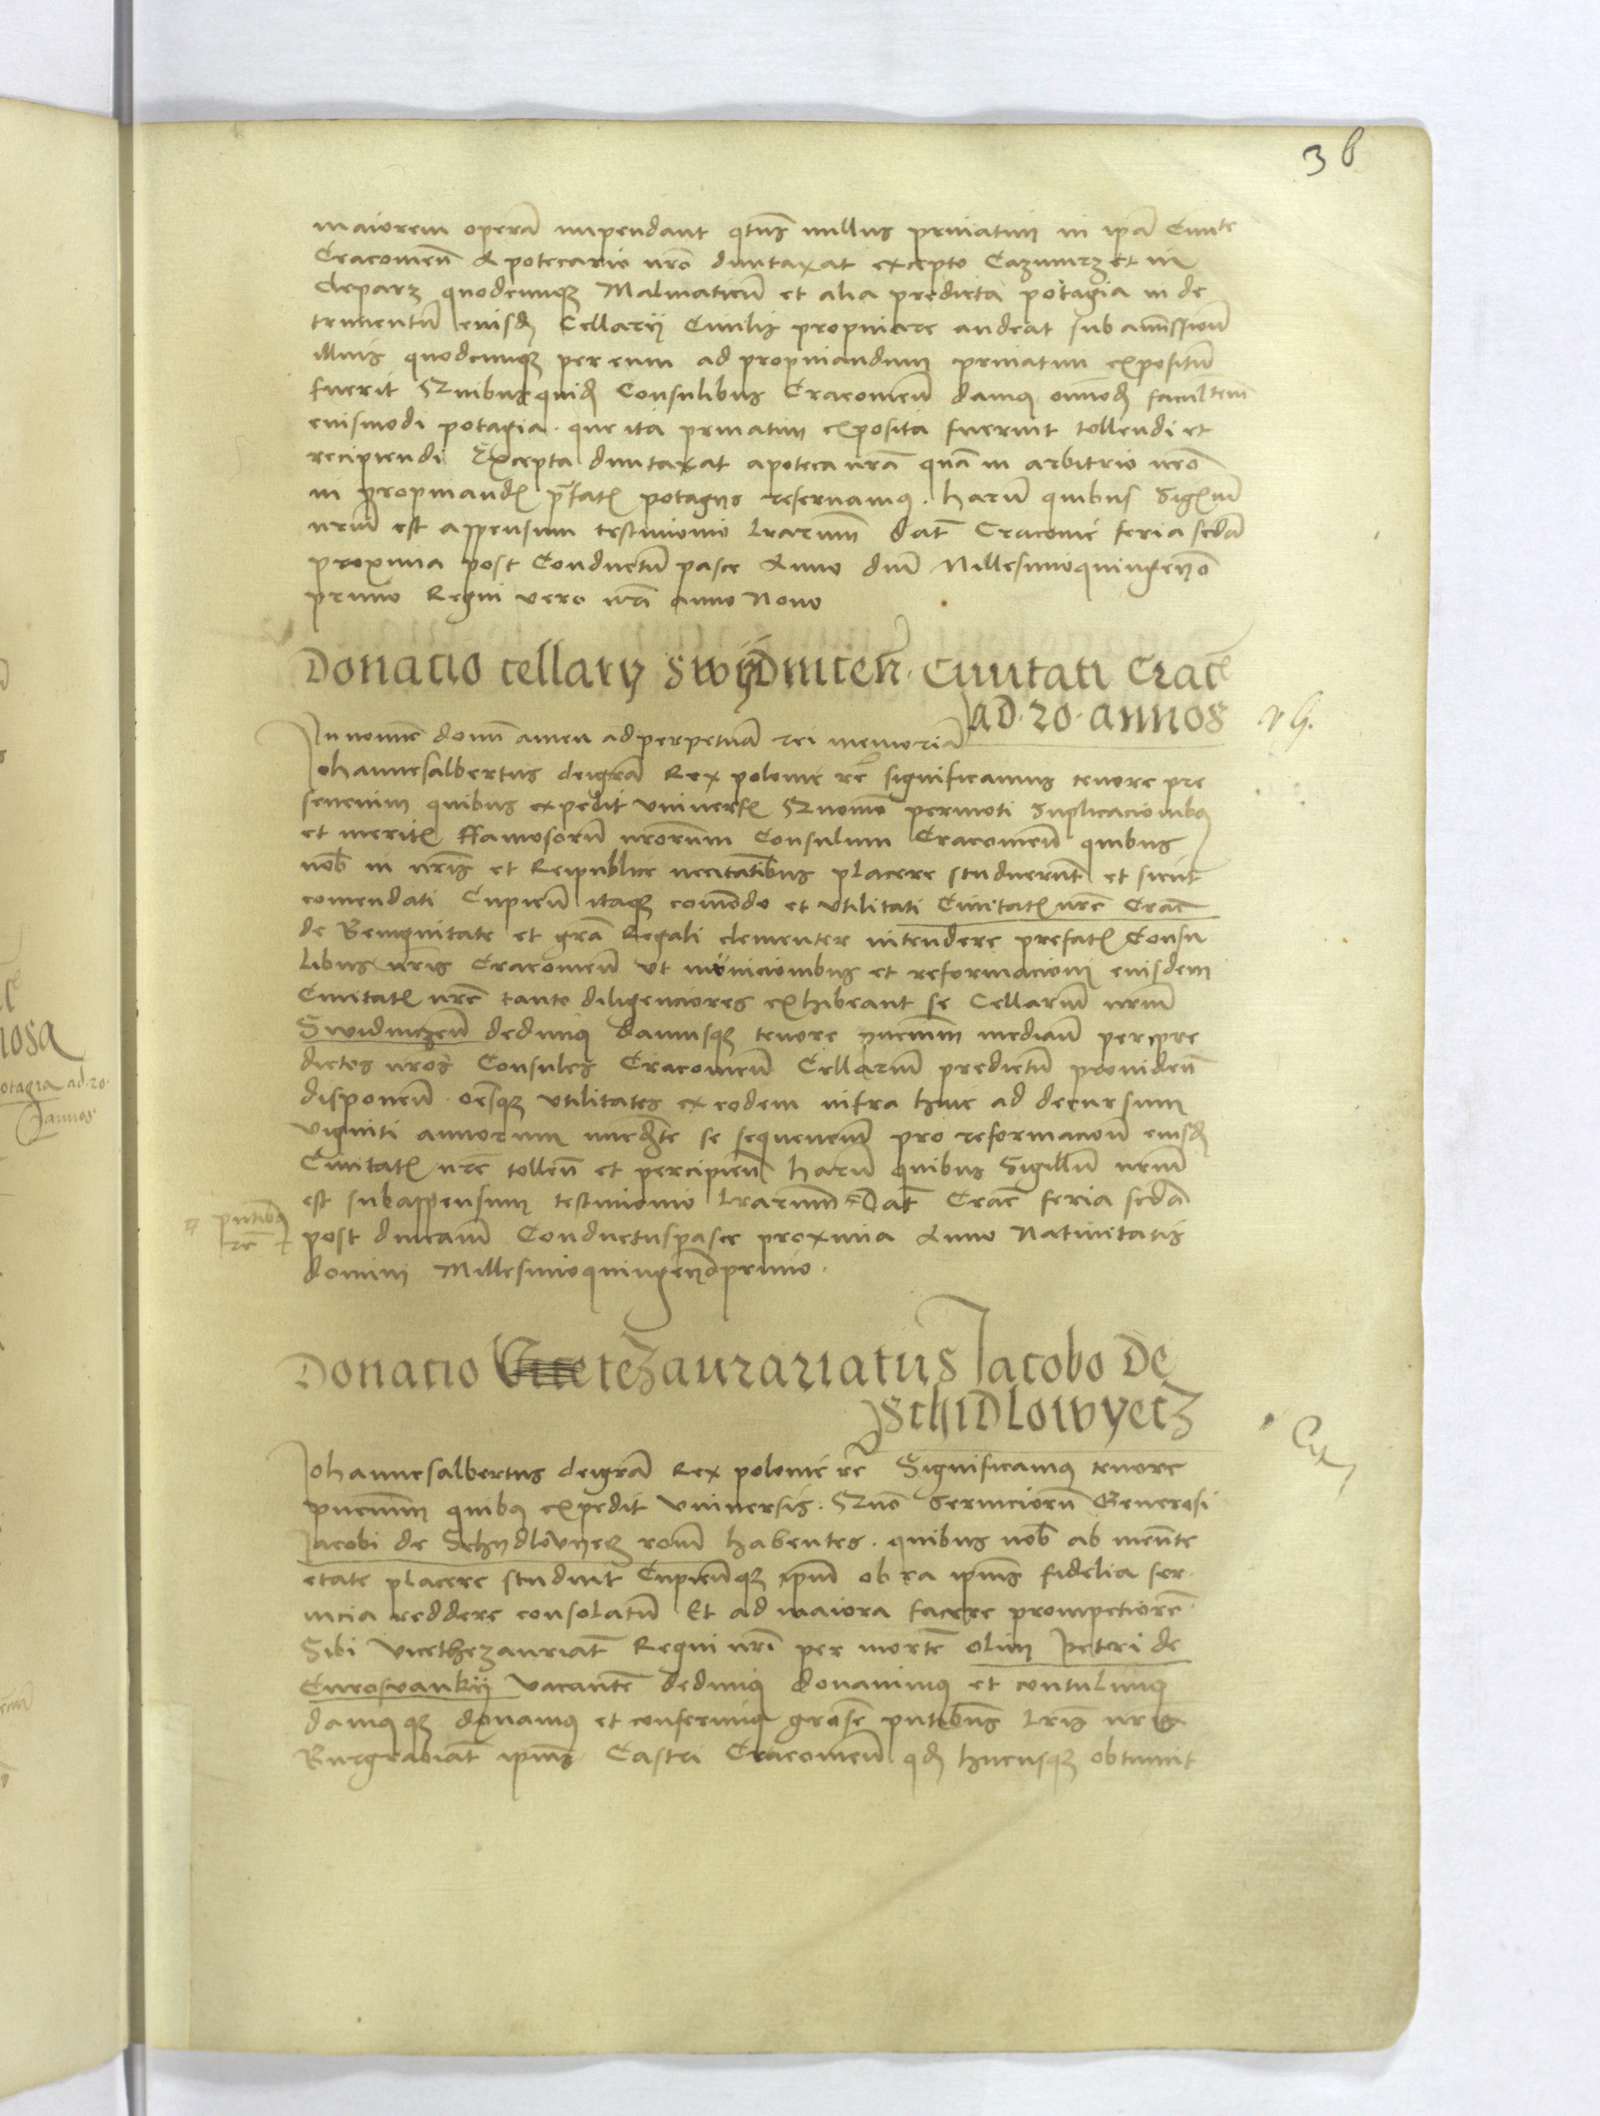 36
maiorem operā impendant qtus nullus priuatim in ipā Ciuite
Cracouien̄ Apotecario nrō duntaxat excepto Cazimirz et in
Cleparz quodcumq̧ Malmaticū et alia predicta potagia in de
trimentū eiusd Cellarij Ciuilis propinare audeat sub amissione
illius quodcumq̧ per eum ad propinandum priuatim expositū
fuerit Quibusquid Consulibus Cracouien̄ damus oīmod facultem
eiusmodi potagia que ita priuatim exposita fuerint tollendi et
recipiendi Excepta duntaxat apoteca nrā quā in arbitrio nrō
in propinand prefat potagijs reseruamus . harū quibus Sigillū
nrm̄ est appensum testimonio lrarum̄ dat Cracouie feria scdā
proxima post Conductū pasce Anno dnī Millesimoquingenͦ
primo Regni vero nrī anno Nono
Donacio cellarij Swijdnicen̄ Ciuitati Crac
ad 20 annos
In nomine domī amen ad perpetuā rei memoriā
Johannesalbertus deigrā Rex polonie rc̄ significamus tenore pre
sencium quibus expedit vniuersis Quomō permoti Suplicacionibus
et meritis ffamosorū nrorum Consulum Cracouien̄ quibus
nob in nrīs et Reipublice necitatibus placere studuerunt et sunt
comendati Cupien̄ itaq̧ comodo et vtilitati Ciuitatis nrē Crac
de Benignitate et grā Regali clementer intendere prefatis Consu
libus nrīs Cracouien̄ vt municionibus et reformacioni eiusdem
Ciuitatis nrē tanto diligenciores exhibeant se Cellarium nrm̄
Swidniczen̄ dedimus damusq̧ tenore pncium̄ median̄ per pre
dictos nros Consules Cracouien̄ Cellarium predictū prouiden̄
disponen̄ oēsq̧ vtilitates ex eodem infra hinc ad decursum
viginti annorum immediate se sequencium pro reformacione eiusd
Ciuitatis nrē tollen̄ et percipien̄ harū quibus Sigillū nrm̄
est subappensum testimonio lrarum̄ Dat Crac feria scdā
pntibus
rc̄
post dnicam̄ Conductuspasce proxima Anno Natiuitatis
domini Millesimoquingenͦprimo .
Donacio Vice tezaurariatus Jacobo de
Schidlowyecz
Johannesalbertus deigrā Rex polonie rc̄ Significamus tenore
pncium̄ quibus expedit vniuersis . Quō seruiciorū Generosi
Jacobi de Schydlovyecz rom̄ habentes . quibus nob ab ineunte
etate placere studuit Cupien̄q̧ ipm̄ ob ea ipius fidelia ser
uicia reddere consolatū Et ad maiora facere prompciorē
Sibi vicethezauriat Regni nrī per mortē olim Petri de
Curoswankij vacantē dedimus donauimus et contulimus
damusq̧ donamus et conferimus grosē pntibus lris nris
Burgrabiat ipius Castri Cracouien̄ qd hucusq̧ obtinuit